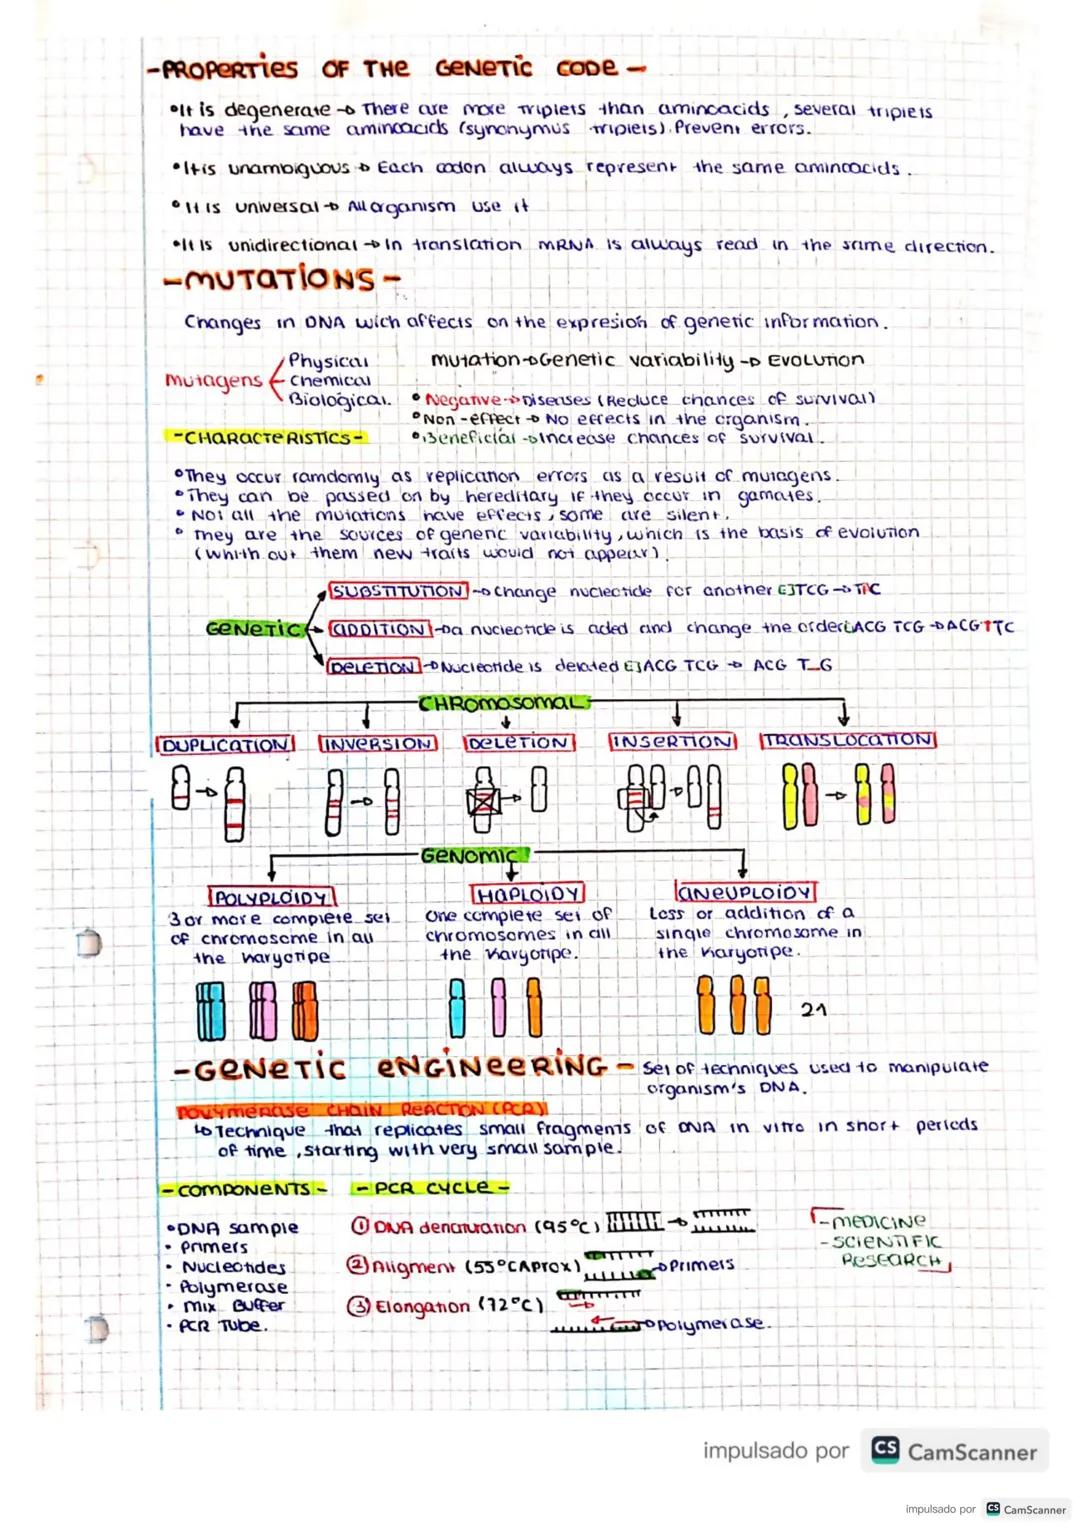 -PROPERTIES OF THE GENETIC CODE-
•It is degenerate → There are more triplets than aminoacids, several triplets
have the same aminoacids (synonymus triplets). Prevent errors.
•It is unambiguous → Each codon always represent the same aminoacids.
•It is universal → All organism use it
•It is unidirectional → In translation mRNA is always read in the same direction.
-MUTATIONS-
Changes in DNA wich affects on the expresion of genetic information.
Mutagens
Physical
Chemical
Biological.
mutation→Genetic variability → EVOLUTION
•Negative→Diseases (Reduce chances of survival)
•Non-effect → No effects in the organism.
•Beneficial →Increase chances of survival.
-CHARACTERISTICS-
•They occur ramdomly as replication errors as a result of mutagens.
•They can be passed on by hereditary if they occur in gamates.
•Not all the mutations have effects, some are silent.
•They are the sources of genetic variability, which is the basis of evolution
(whithout them new traits would not appear).
GENETIC
SUBSTITUTION → Change nucleotide for another EJTCG→
ADDITION →a nucleotide is aded and change the order ACG TCG →ACG TTC
DELETION →Nucleotide is delated EJ ACG TCG → ACG T_G
CHROMOSOMAL
DUPLICATION INVERSION DELETION INSERTION TRANSLOCATION
GENOMIC
POLYPLOIDY
3 or more complete set
of chromosome in all
the karyotipe
HAPLOIDY
One complete set of
chromosomes in all
the karyotipe.
ANEUPLOIDY
Loss or addition of a
single chromosome in
the karyotipe.
21
-GENETIC ENGINEERING- Set of techniques used to manipulate
organism's DNA.
POLYMERASE CHAIN REACTION (PCR)
↳Technique that replicates small fragments of DNA in vitro in short periods
of time, starting with very small sample.
-COMPONENTS-
•DNA sample
• Primers
• Nucleotides
• Polymerase
• Mix Buffer
• PCR Tube.
-PCR CYCLE-
① DNA denaturation (95°C)
② Aligment (55°C Aprox) →Primers
③ Elongation (72°C)
→Polymerase.
-MEDICINE
-SCIENTIFIC
RESEARCH
impulsado por CS CamScanner
impulsado por CS CamScanner